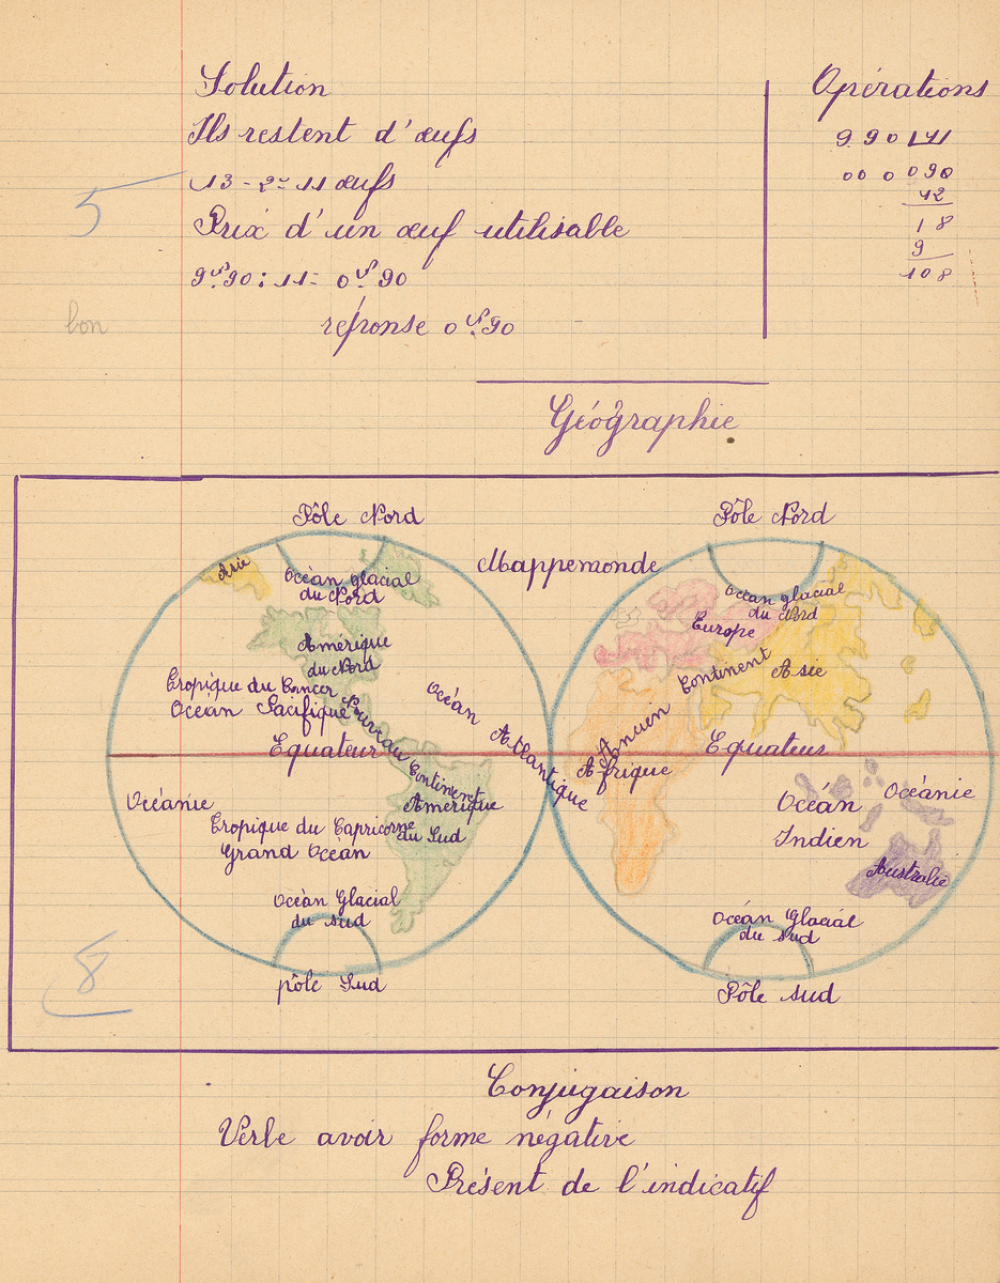 Solution
Ils restent d'œufs
13 - 2 = 11 œufs
Prix d'un œuf utilisable
9f90 : 11 = 0f90
réponse 0f90
5
bon
Opérations
990 11
00 0 090
42
18
9
108
Géographie
Mappemonde
Pôle Nord
Asie
Océan glacial
du Nord
Amérique
du Nord
Tropique du Cancer
Océan Pacifique
Equateur
Continent
Océanie
Amérique
du Sud
Tropique du Capricorne
Grand Océan
Océan Glacial
du sud
pôle Sud
Océan Atlantique
Pôle Nord
Océan glacial
du Nord
Europe
Ancien Continent
Asie
Equateur
Afrique
Océan
Indien
Océanie
Australie
Océan Glacial
du Sud
Pôle sud
8
Conjugaison
Verbe avoir forme négative
Présent de l'indicatif